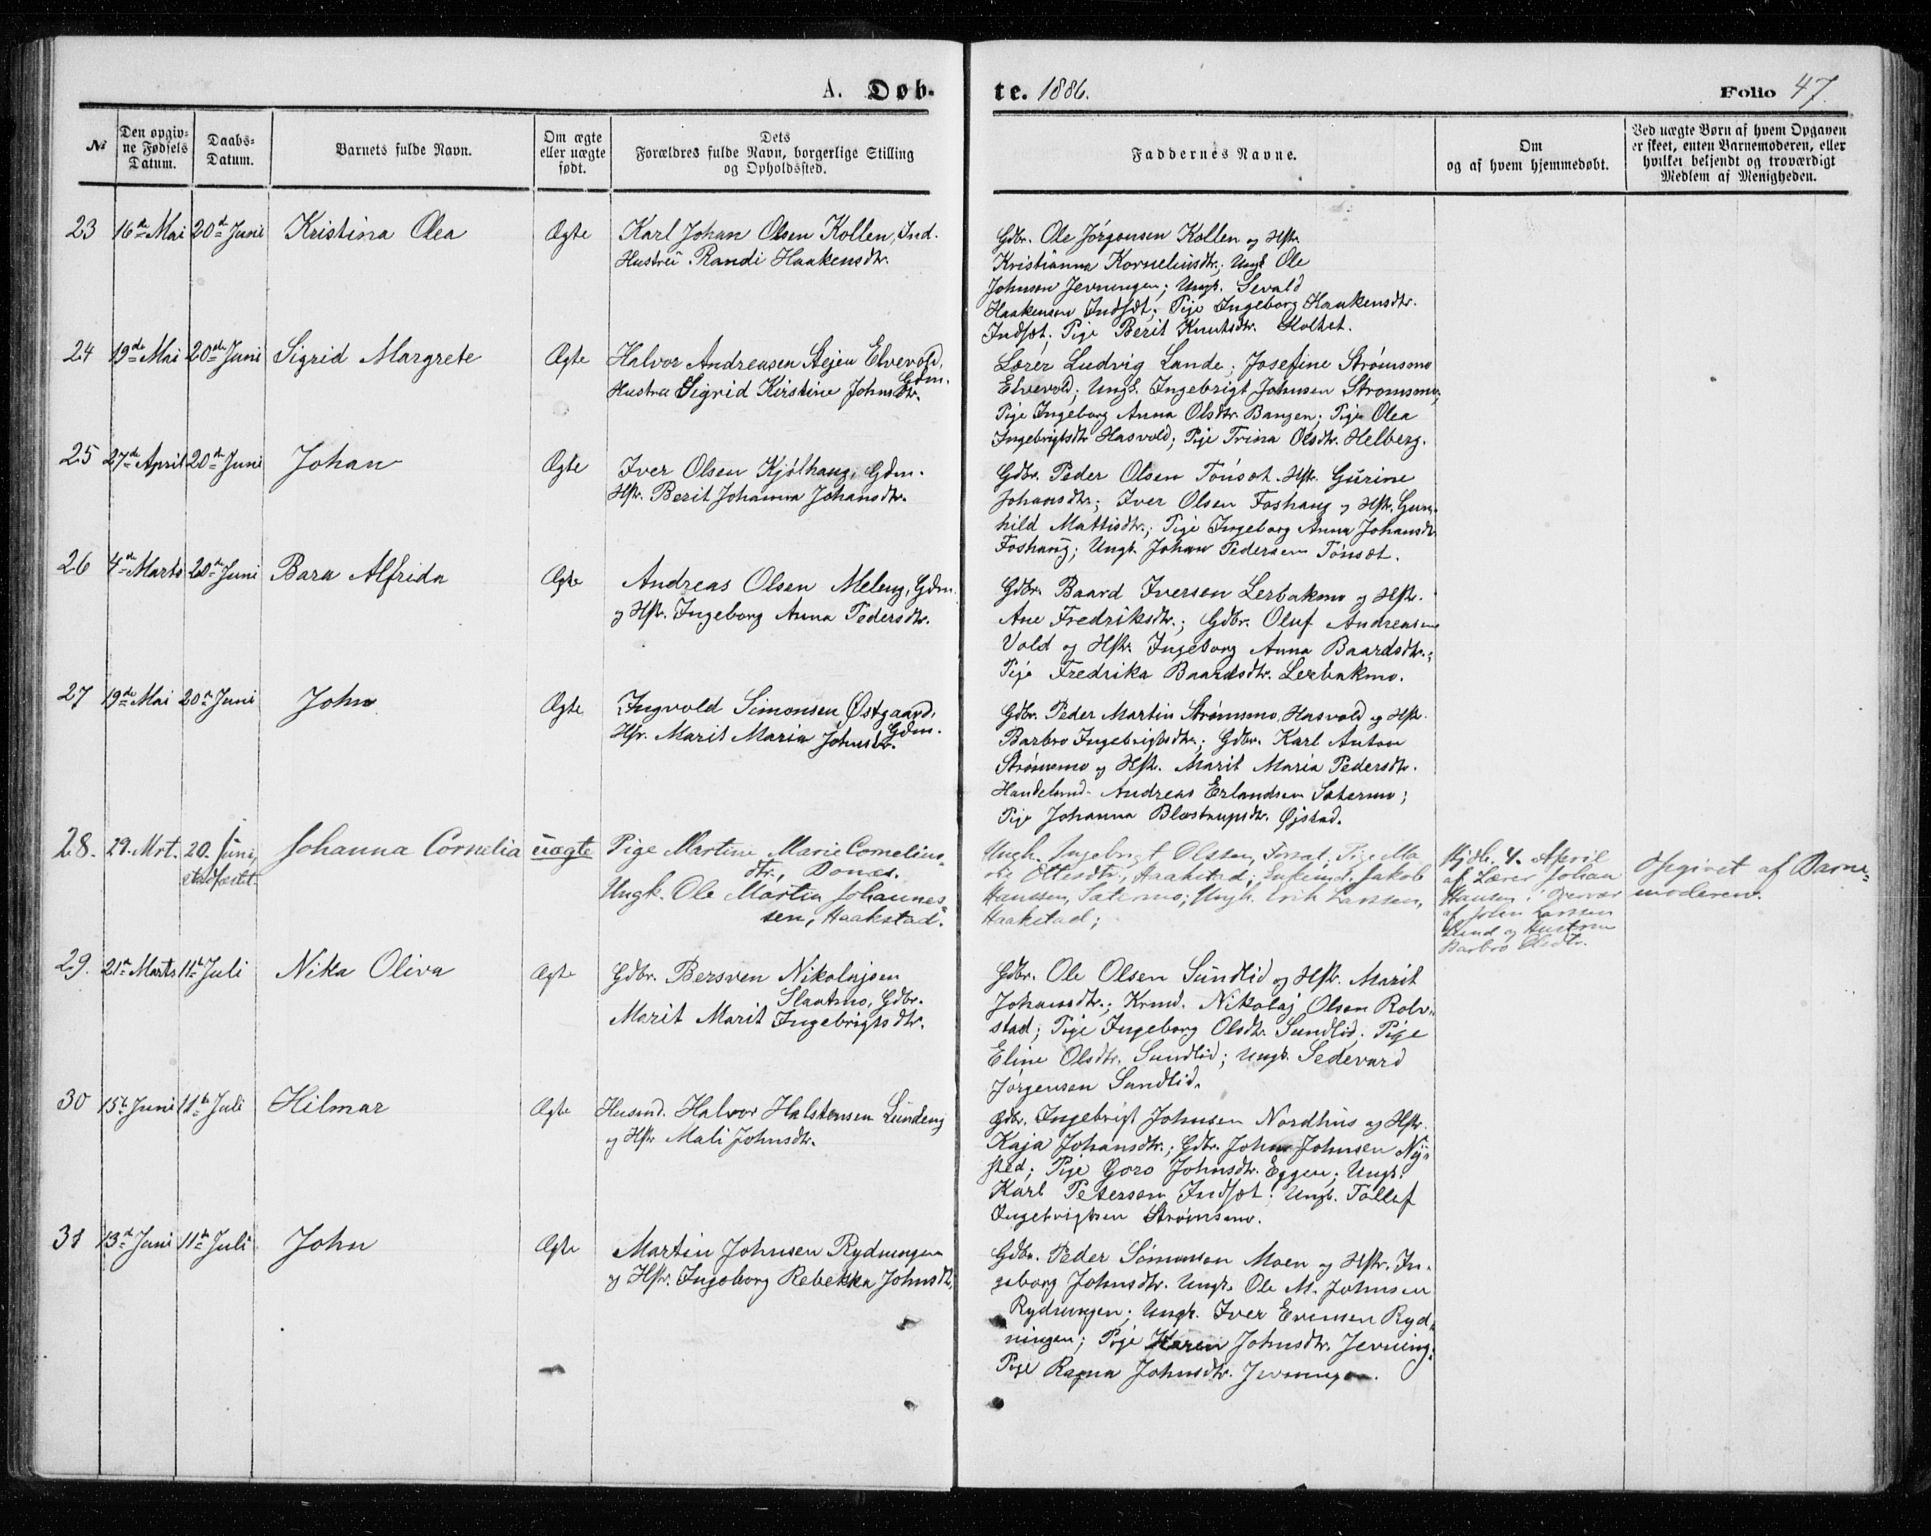 A. Døb-
te. 1886.
Folio 47.
№
Den opgiv-
ne Fødsels
Datum.
Daabs-
Datum.
Barnets fulde Navn.
Om ægte
eller uægte
født.
Dets
Forældres fulde Navn, borgerlige Stilling
og Opholdssted.
Faddernes Navne.
Om
og af hvem hjemmedøbt.
Ved uægte Børn af hvem Opgaven
er skeet, enten Barnemoderen, eller
hvilket bekjendt og troværdigt
Medlem af Menigheden.
23 16de Mai 20de Juni Kristina Olea Ægte
Karl Johan Olsen Kollen, Ind.
Hustru Randi Haakensdtr.
Gdbr. Ole Jörgensen Kollen og Hstr.
Kristianna Korneliusdtr.; Ungk. Ole
Johnsen Jevningen; Ungk. Sevald
Haakensen Indset; Pige Ingeborg Haakensdtr.
Indset; Pige Berit Knutsdtr. Holtet.
24 19de Mai 20de Juni Sigrid Margrete Ægte
Halvor Andreasen Elvevold,
Gdm.
Hustru Sigrid Kirstine Johnsdtr.
Lærer Ludvig Lande; Josefine Strømsmo
Elvevold; Ungk. Ingebrigt Johnsen Strømsmo;
Pige Ingeborg Anna Olsdtr. Bangen; Pige Olea
Ingebrigtsdtr Hasvold; Pige Trina Olsdtr. Helberg.
25 27de April 20de Juni Johan Ægte
Iver Olsen Kjølhaug, Gdm.
Hstr. Berit Johanna Johansdtr.
Gdbr. Peder Olsen Tönset. Hstr. Gurine
Johansdtr.; Iver Olsen Foshaug og Hstr. Gun-
hild Mattisdtr.; Pige Ingeborg Anna Johansdtr.
Foshaug; Ungk. Johan Pedersen Tönset.
26 4de Marts 20de Juni Bara Alfrida Ægte
Andreas Olsen Meleng, Gdm.
og Hstr. Ingeborg Anna Pedersdtr.
Gdbr. Baard Iversen Lerbakmo og Hstr.
Ane Fredriksdtr.; Gdbr. Oluf Andreasen
Vold og Hstr. Ingeborg Anna Baardsdtr.;
Pige Fredrika Baardsdtr. Lerbakmo.
27 19de Mai 20de Juni John Ægte
Ingvold Simonsen Østgaard,
Gdm.
Hstr. Marit Maria Johnsdtr.
Gdbr. Peder Martin Strømsmo, Hasvold og Hstr.
Barbro Ingebrigtsdtr.; Gdbr. Karl Anton
Strømsmo og Hstr. Marit Maria Pedersdtr.
Handelsmd. Andreas Erlandsen Sætermo;
Pige Johanna Blæstrupsdtr. Øjstad.
28. 29. Mrt. 20. Juni,
stadfæstet.
Johanna Cornelia uægte
Pige Martine Marie Cornelius-
dtr., Bones.
Ungk. Ole Martin Johannes-
sen, Haakstad.
Ungk. Ingebrigt Olssen, Fosset; Pige Ma
Ottesdtr., Haakstad; Jakob
Hanssen, Sætermo; Ungk. Erik Larssen,
Haakstad;
Hjdb. 4. April
af Lærer Johan
Hansen i Overvær
af John Larssen
Lund og Hustru
Barbro Olsdtr.
Opgivet af Barne-
moderen.
29. 21de Marts 11te Juli Nika Oliva Ægte
Gdbr. Bersven Nikolajsen
Slaatmo, Gdbr.
Marit Marit Ingebrigtsdtr.
Gdbr. Ole Olsen Sundlid og Hstr. Marit
Johansdtr.; Krmd. Nikolaj Olsen Rolv-
stad; Pige Ingeborg Olsdtr. Sundlid; Pige
Eline Olsdtr. Sundlid; Ungk. Sedevard
Jørgensen Sundlid.
30 15de Juni 11te Juli Hilmar Ægte
Husmd. Halvor Halstensen Lundeng
og Hstr Mali Johnsdtr.
Gdbr. Ingebrigt Johnsen Nordhus og Hstr.
Kaja Johansdtr.; Gdbr. John Johnsen Ny-
sted; Pige Goro Johnsdtr. Eggen; Ungk.
Karl Petersen Indset; Ungk. Tollef
Ingebrigtsen Strømsmo.
31 13de Juni 11te Juli John Ægte
Martin Johnsen Rydningen
og Hstr. Ingeborg Rebekka Johnsdtr.
Gdbr. Peder Simonsen Moen og Hstr. In-
geborg Johnsdtr. Ungk. Ole M. Johnsen
Rydningen; Ungk. Iver Evensen Ryd-
ningen; Pige Karen Johnsdtr. Jevning.
Pige Ragna Johnsdtr. Jevningen.